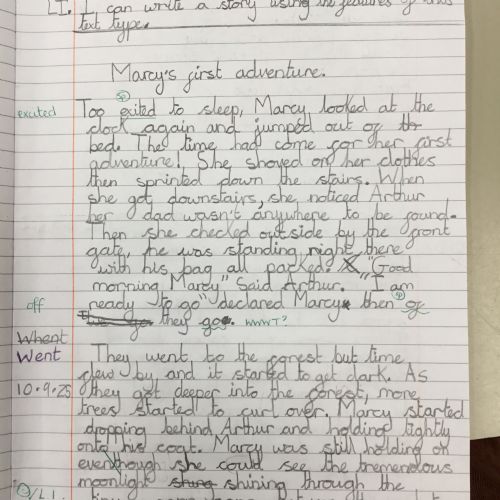 LI. I can write a story using the features of this
text type.
Marcy's first adventure.
excited
sp
Too exited to sleep, Marcy looked at the
clock again and jumped out of
bed. The time had come for her first
adventure! She shoved on her clothes
then sprinted down the stairs. When
she got downstairs, she noticed Arthur
her dad wasn't anywhere to be found.
Then she checked outside by the front
gate, he was standing right there
with his bag all packed. "Good
morning Marcy" said Arthur. "I am
ready to go" declared Marcy then of
off
they go. WWWT?
Whent
Went
They went to the forest but time
flew by and it started to get dark. As
10.9.25
they got deeper into the forest, more
trees started to curl over. Marcy started
dropping behind Arthur and holding tightly
onto his coat. Marcy was still holding on
eventhough she could see the tremendous
moonlight shining through the